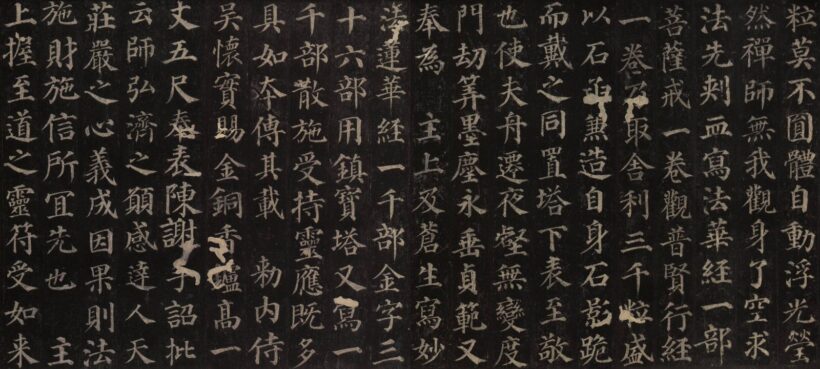 粒莫不圓體自動浮光瑩
然禪師無我觀身了空求
法先刾血寫法華經一部
菩薩戒一卷觀普賢行經
一卷乃取舍利三千粒盛
以石函兼造自身石影跪
而戴之同置塔下表至敬
也使夫舟遷夜壑無變度
門劫筭墨塵永垂貞範又
奉為 主上及蒼生寫妙
法蓮華經一千部金字三
十六部用鎮寶塔又寫一
千部散施受持靈應既多
具如本傳其載 勑內侍
吳懷實賜金銅香爐高一
丈五尺奉表陳謝 手詔批
云師弘濟之願感達人天
莊嚴之心義成因果則法
施財施信所宜先也 主
上握至道之靈符受如来